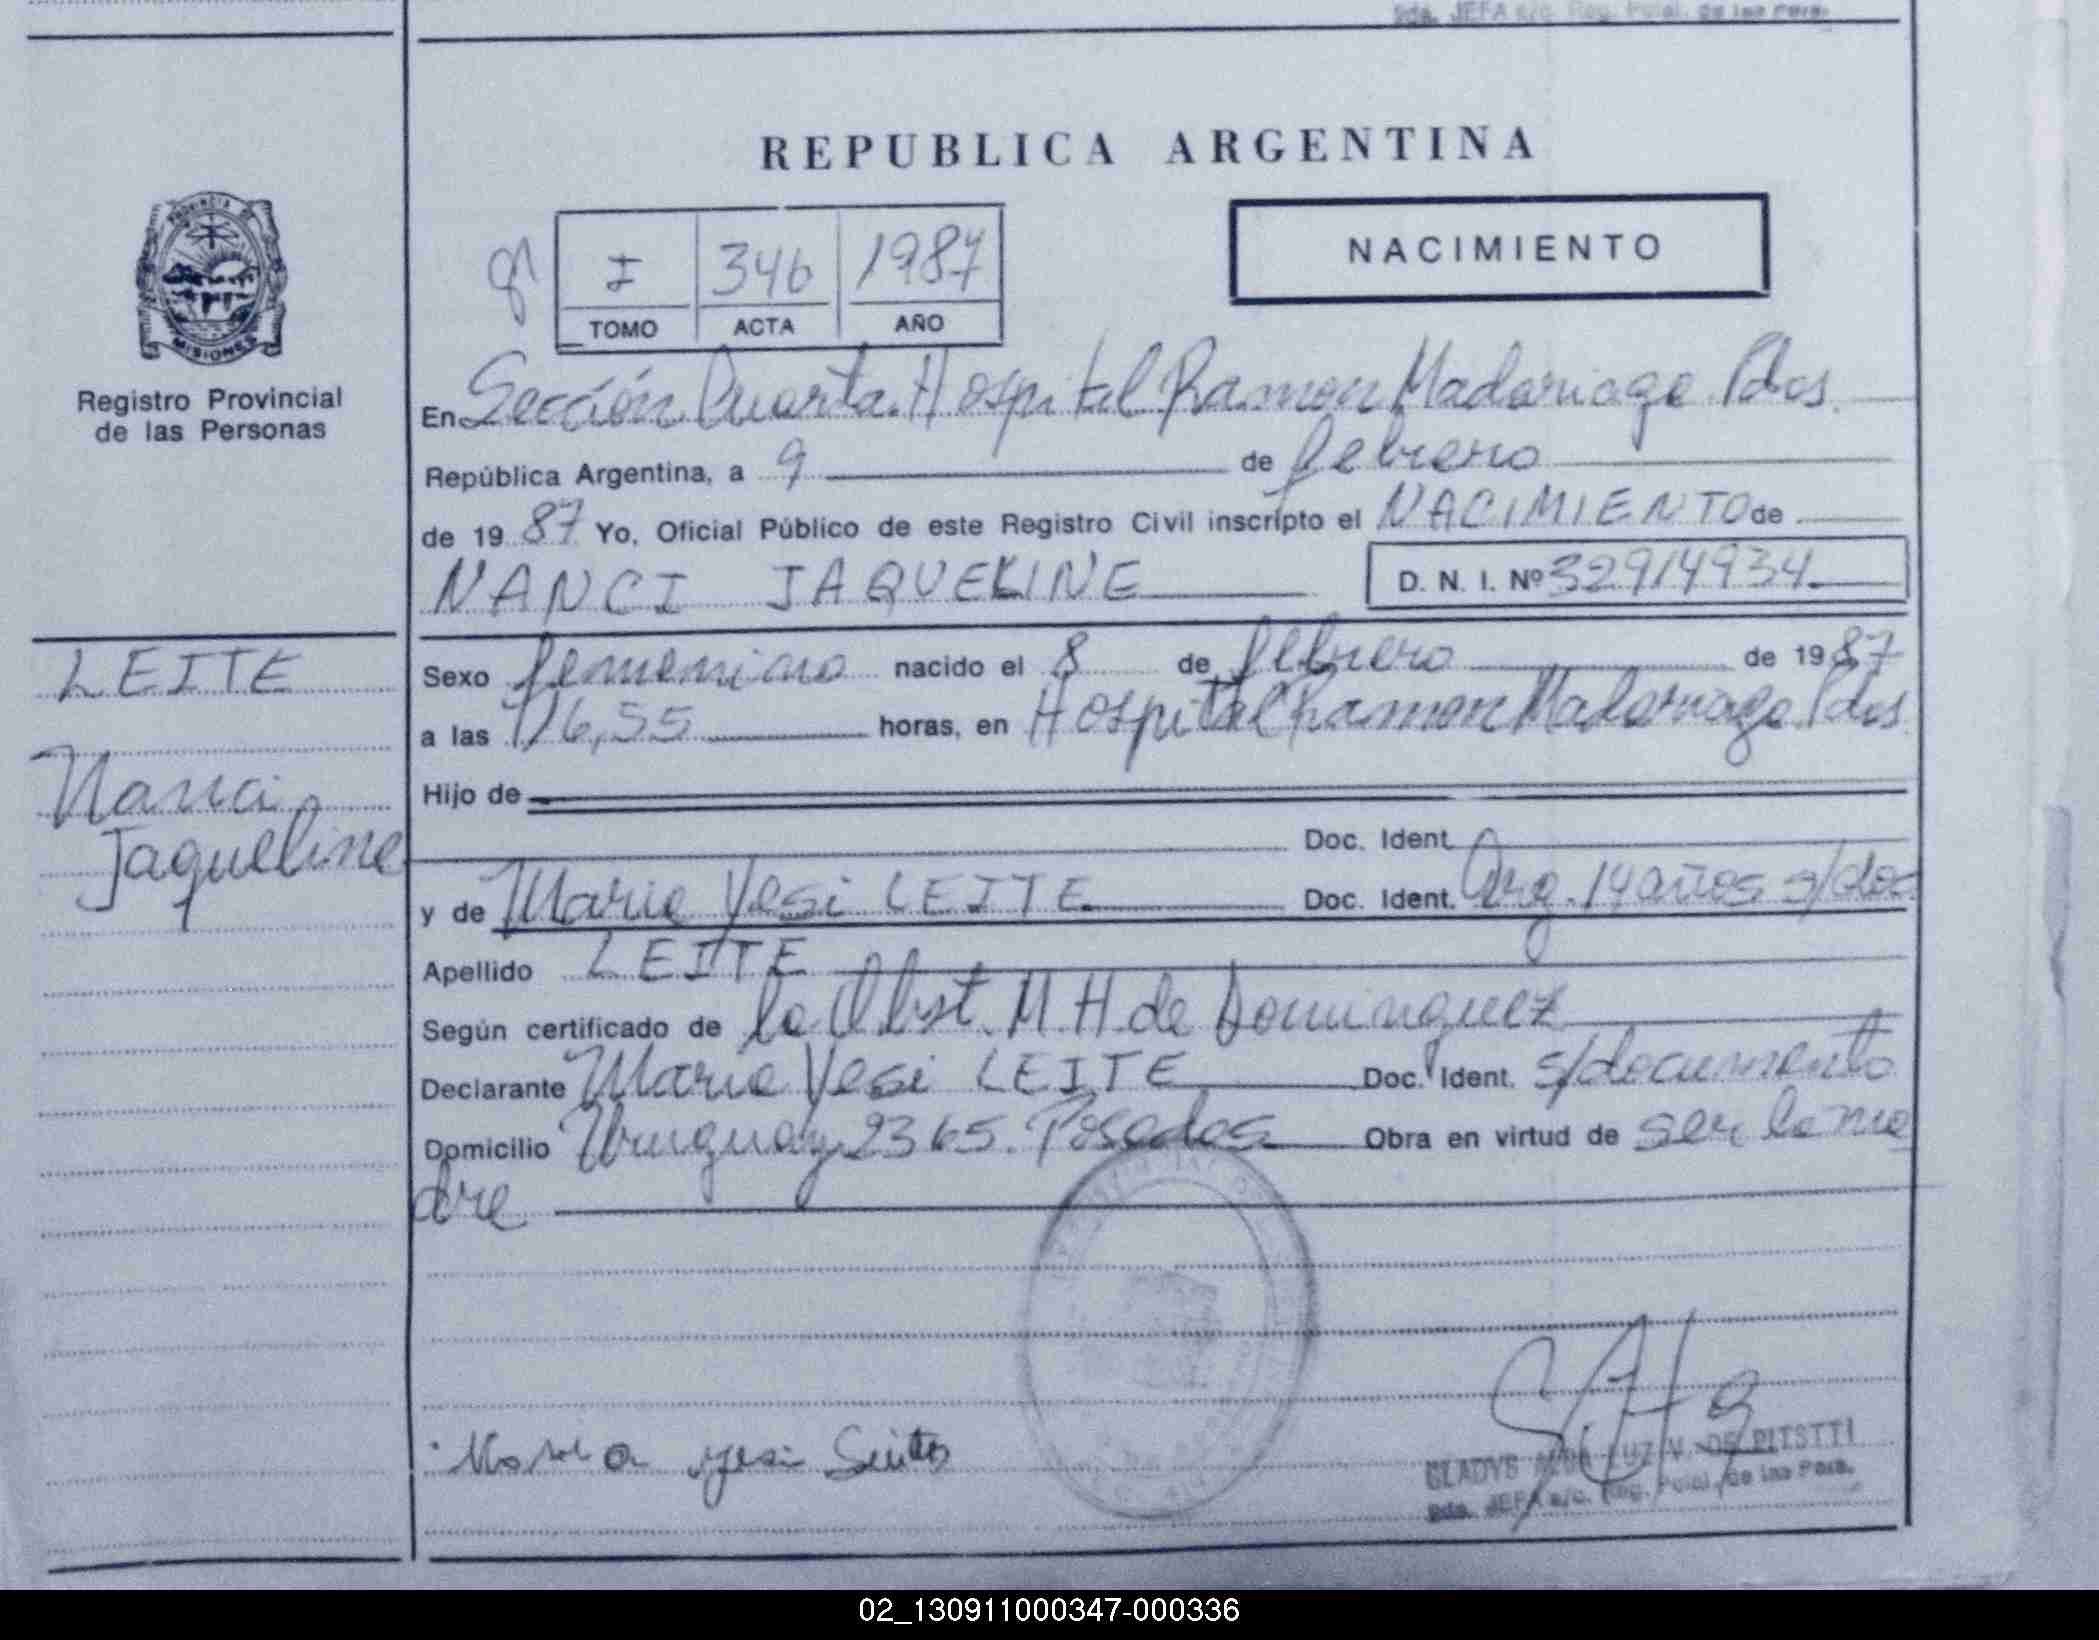 Sda. JEFA a/c. Reg. Pcial. de las Pers.
REPUBLICA ARGENTINA
PROVINCIA DE
MISIONES
Registro Provincial
de las Personas
I 346 1987
TOMO ACTA AÑO
NACIMIENTO
En Sección Cuarta. Hospital Ramon Madariaga Pdas.
República Argentina, a 9 de febrero
de 1987 Yo, Oficial Público de este Registro Civil inscripto el NACIMIENTO de
NANCI JAQUELINE D. N. I. Nº 32914934
LEITE
Nanci
Jaqueline
Sexo femenino nacido el 8 de febrero de 1987
a las 16,55 horas, en Hospital Ramon Madariaga Pdas
Hijo de
Doc. Ident.
y de Maria Yesi LEITE Doc. Ident. Arg. 14 años s/doc.
Apellido LEITE
Según certificado de la Obst. M H. de Dominguez
Declarante Maria Yesi LEITE Doc. Ident. s/documento
Domicilio Uruguay 2365. Posadas Obra en virtud de ser la ma
dre
Maria yesi
GLADYS LUZ V. DE PITSTTI
Sda. JEFA a/c. Reg. Pcial. de las Pers.
02_130911000347-000336